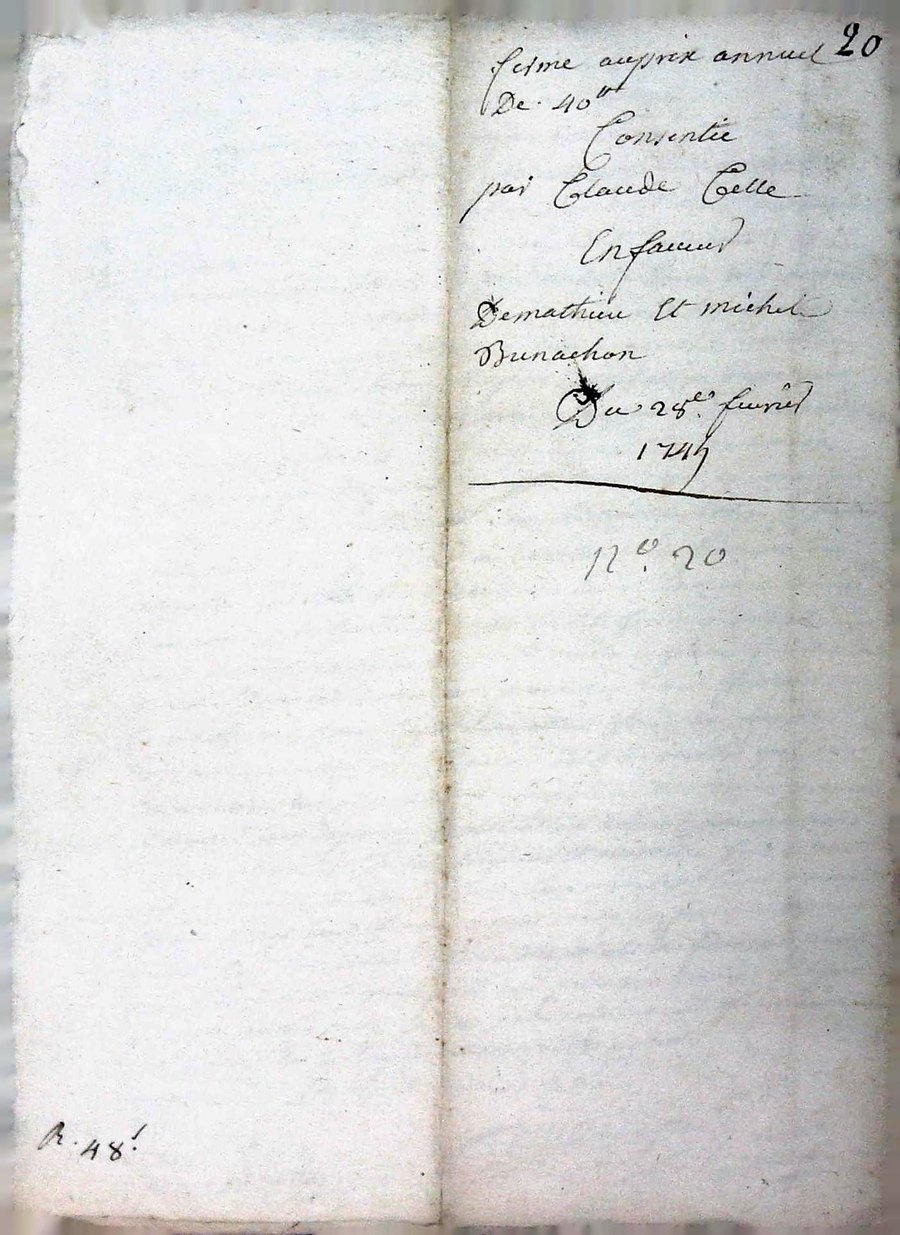 20
ferme auprix annuel
De 40ᵗᵗ
Consentie
par Claude Celle
Enfaueur
Demathieu Et michel
Bunachon
Du 28ᵉ. feurier
1747
N°. 20
R. 48ᶠ